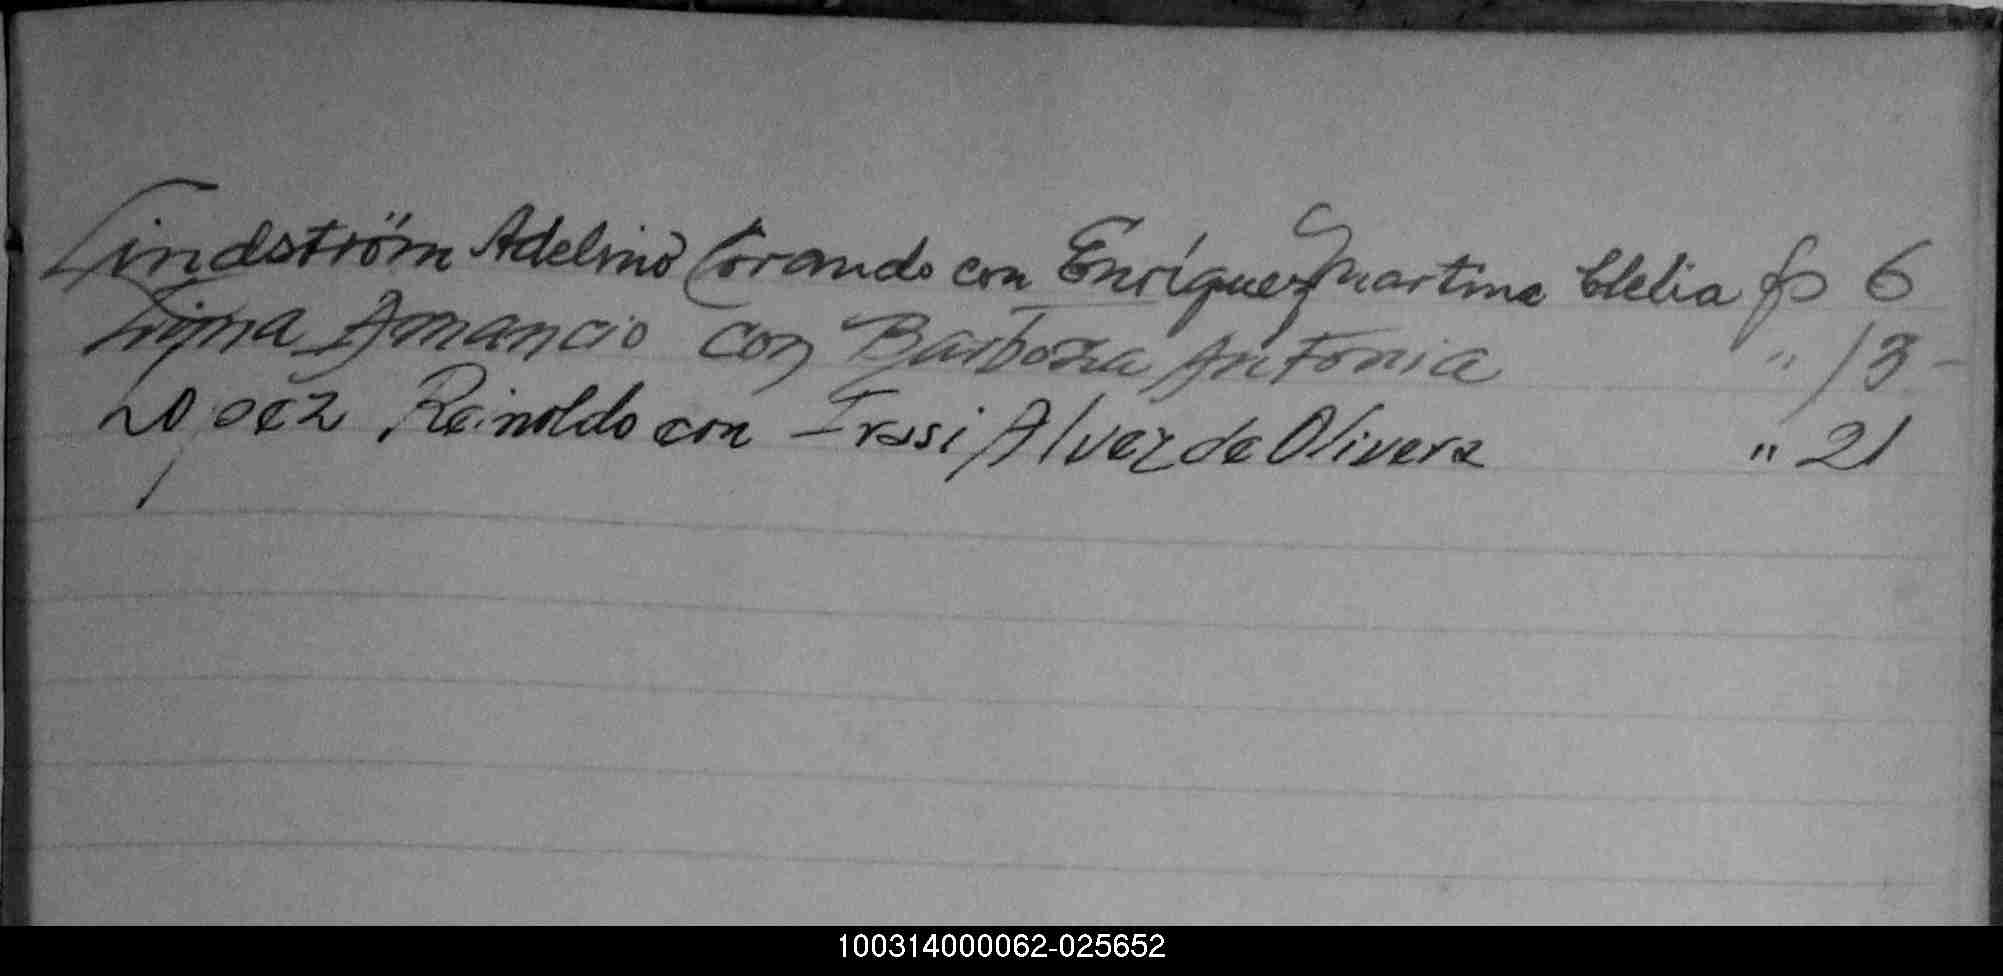 Lindström Adelino Corando con Enríquez Martina Clelia fo 6
Lima Amancio con Barboza Antonia " 13 -
Lopez Reinoldo con Irasi Alvez de Olivera " 21
100314000062-025652